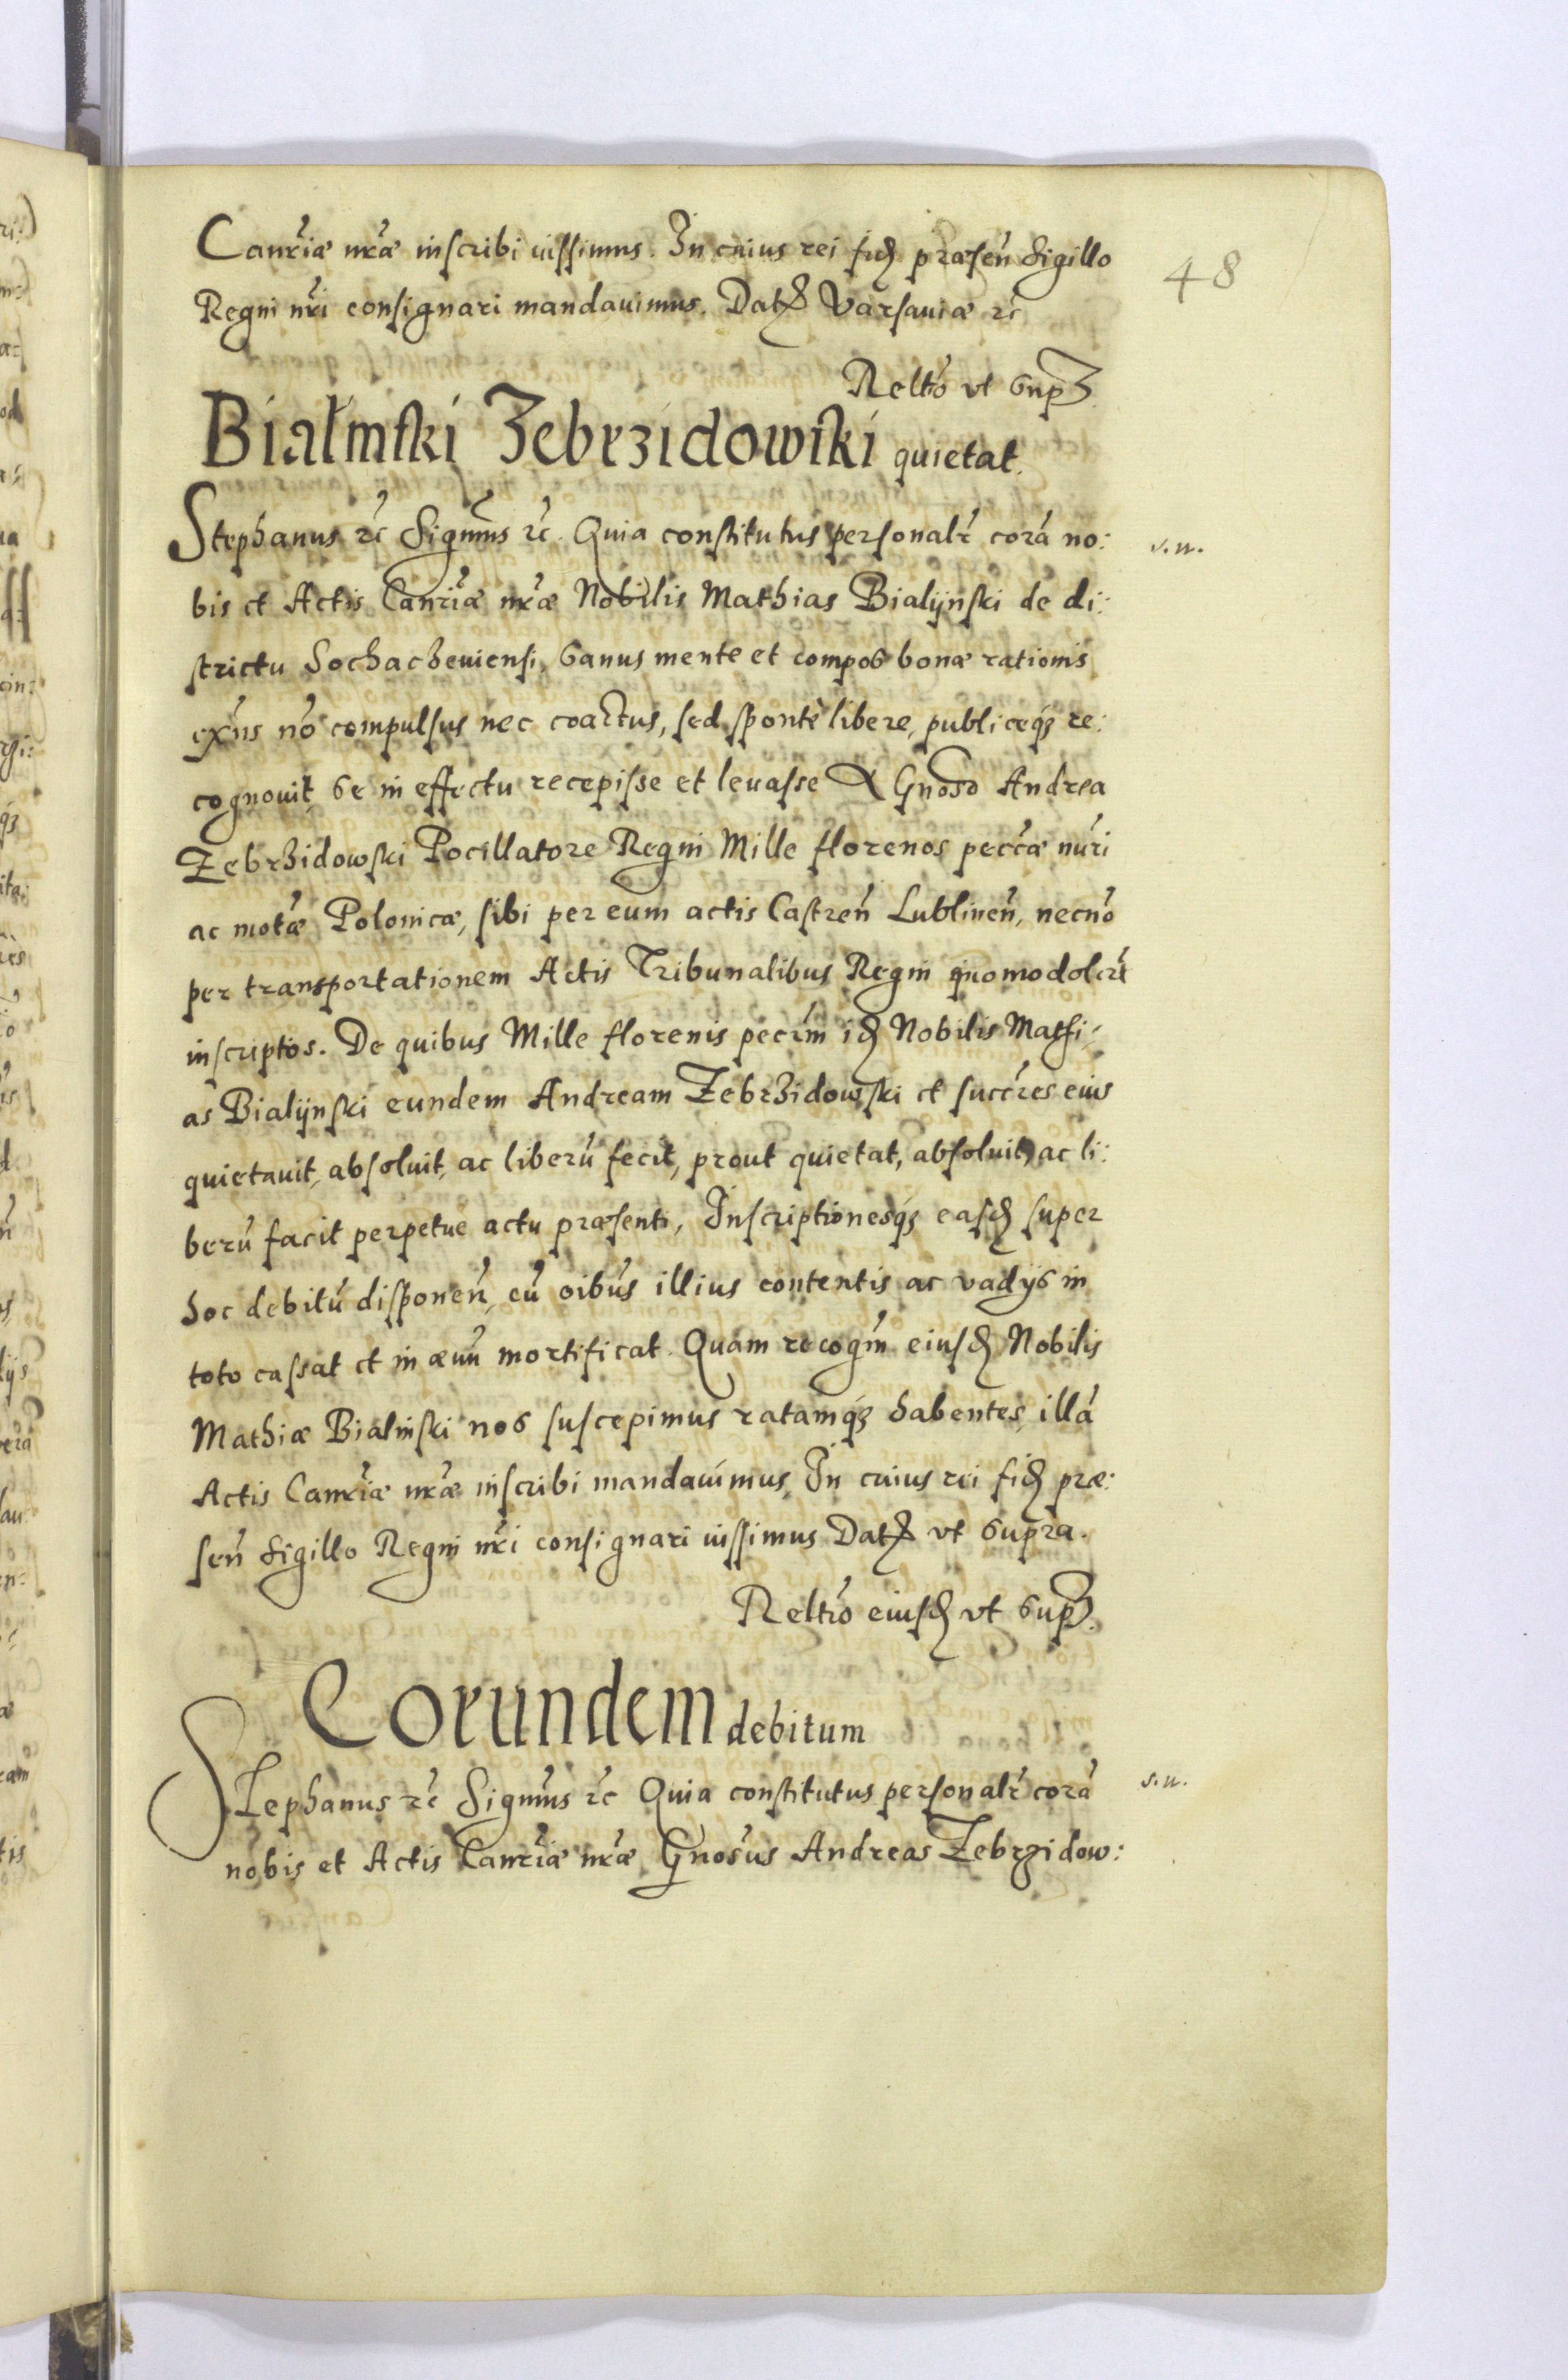 Canc̃riæ nr̃æ inscribi iussimus. In cuius rei fid præsen̄ Sigillo
48
Regni nr̃i consignari mandauimus. Dat Varsauiæ &c̃
Reltõ vt sup
Bialinski Zebrzidowski quietat.
Stephanus &c̃ Significãmus &c̃. Quia constitutus personalr̃ corã no:
v. u.
bis et Actis Canc̃riæ nr̃æ Nobilis Mathias Bialijnski de di:
strictu Sochacheuiensi, sanus mente et compos bonæ rationis
exñs nõ compulsus nec coactus, sed spontè libere, publiceq₃ re:
cognouit se in effectu recepisse et leuasse A Gnoso Andrea
Zebrzidowski Pocillatore Regni Mille florenos pecc̃æ nũri
ac motæ̃ Polonicæ, sibi per eum actis Castren̄ Lublinen̄, necnõ
per transportationem Actis Tribunalibus Regni quomodolr̃t
inscriptos. De quibus Mille florenis pecc̃m id Nobilis Mathi:
as Bialijnski eundem Andream Zebrzidowski et succ̃res eius
quietauit, absoluit, ac liberũ fecit, prout quietat, absoluit, ac li:
berũ facit perpetue actu præsenti, Inscriptionesq₃ easd super
hoc debitũ disponen̄, cũ oibũs illius contentis ac vadijs in
toto cassat et in æuũ mortificat. Quam recogñm eiusd Nobilis
Mathiæ Bialinski nos suscepimus ratamq₃ habentes, illã
Actis Canc̃riæ nr̃æ inscribi mandauimus, In cuius rei fid præ:
sen̄ Sigillo Regni nr̃i consignari iussimus Dat vt supra.
Reltõ eiusd vt sup.
Eorundem debitum
Stephanus &c̃ Significãmus &c̃ Quia constitutus personalr̃ corã
s. u.
nobis et Actis Canc̃riæ nr̃æ Gnosus Andreas Zebrzidow: